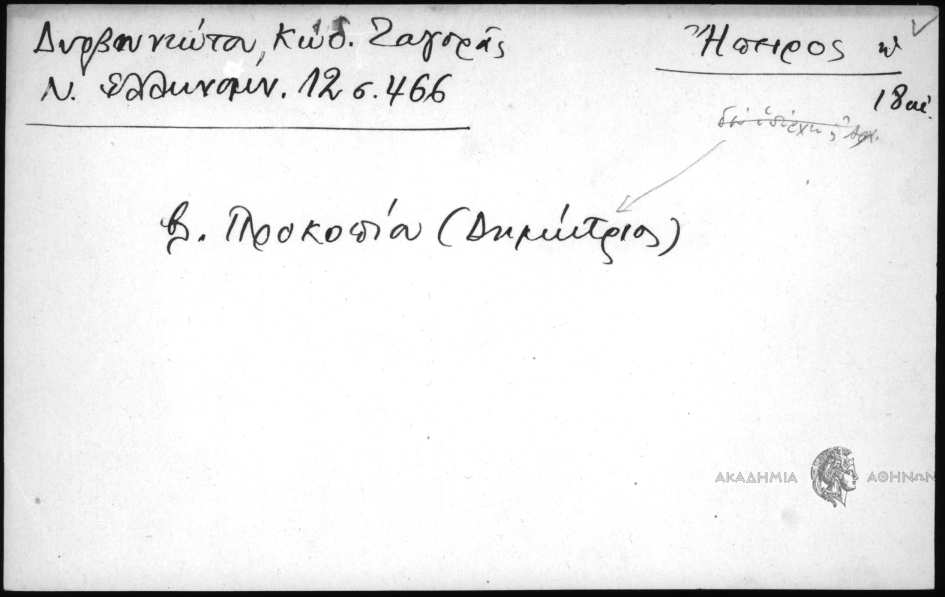 Δυοβουνιώτου, Κώδ. Ζαγορᾶς
Ν. Ἑλληνομν. 12 σ. 466
Ἤπειρος
18 αἰ.
Προκοπίου (Δημήτριος)
ΑΚΑΔΗΜΙΑ ΑΘΗΝΩΝ